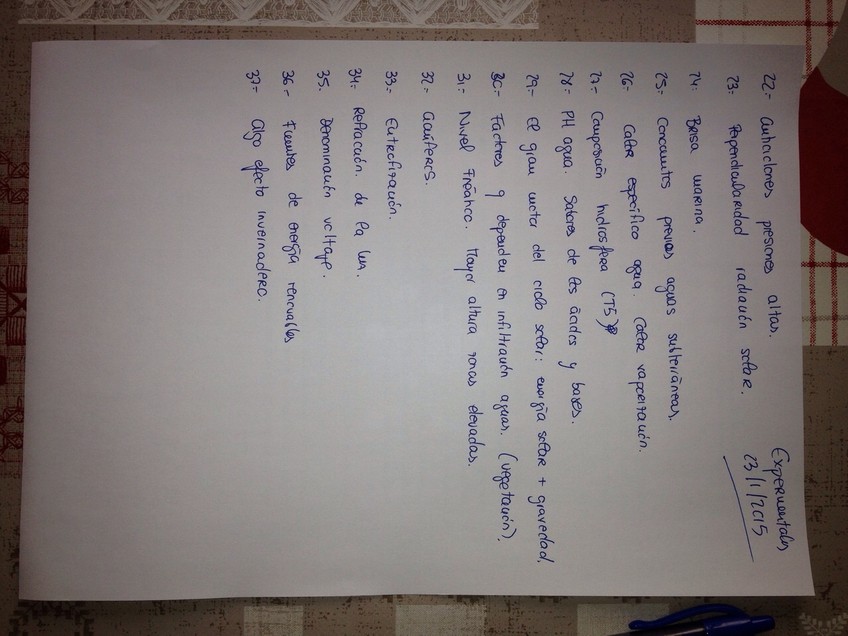 Experimentales
23/1/2015
22.- Anticiclones presiones altas.
23.- Perpendicularidad radiación solar.
24.- Brisa marina.
25.- Conocimientos previos aguas subterráneas.
26.- Calor específico agua. Calor vaporización.
27.- Composición hidrosfera (T5)
28.- PH agua. Sabores de los ácidos y bases.
29.- El gran motor del ciclo solar: energía solar + gravedad.
30.- Factores q dependen en infiltración aguas. (vegetación).
31.- Nivel freático. Mayor altura zonas elevadas.
32.- acuíferos.
33.- Eutrofización.
34.- Refracción de la luz.
35.- Denominación voltaje.
36.- Fuentes de energía renovables
37.- Algo efecto invernadero.